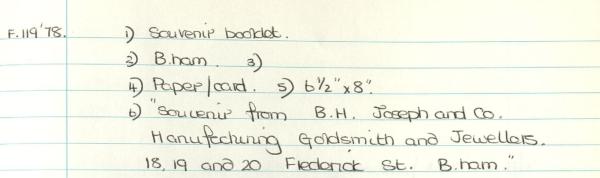 F.119'78. 1) Souvenir booklet.
2) B.ham. 3)
4) Paper/card. 5) 6½" x 8".
6) "Souvenir from B.H. Joseph and Co.
Manufacturing Goldsmith and Jewellers.
18, 19 and 20 Frederick St. B.ham."